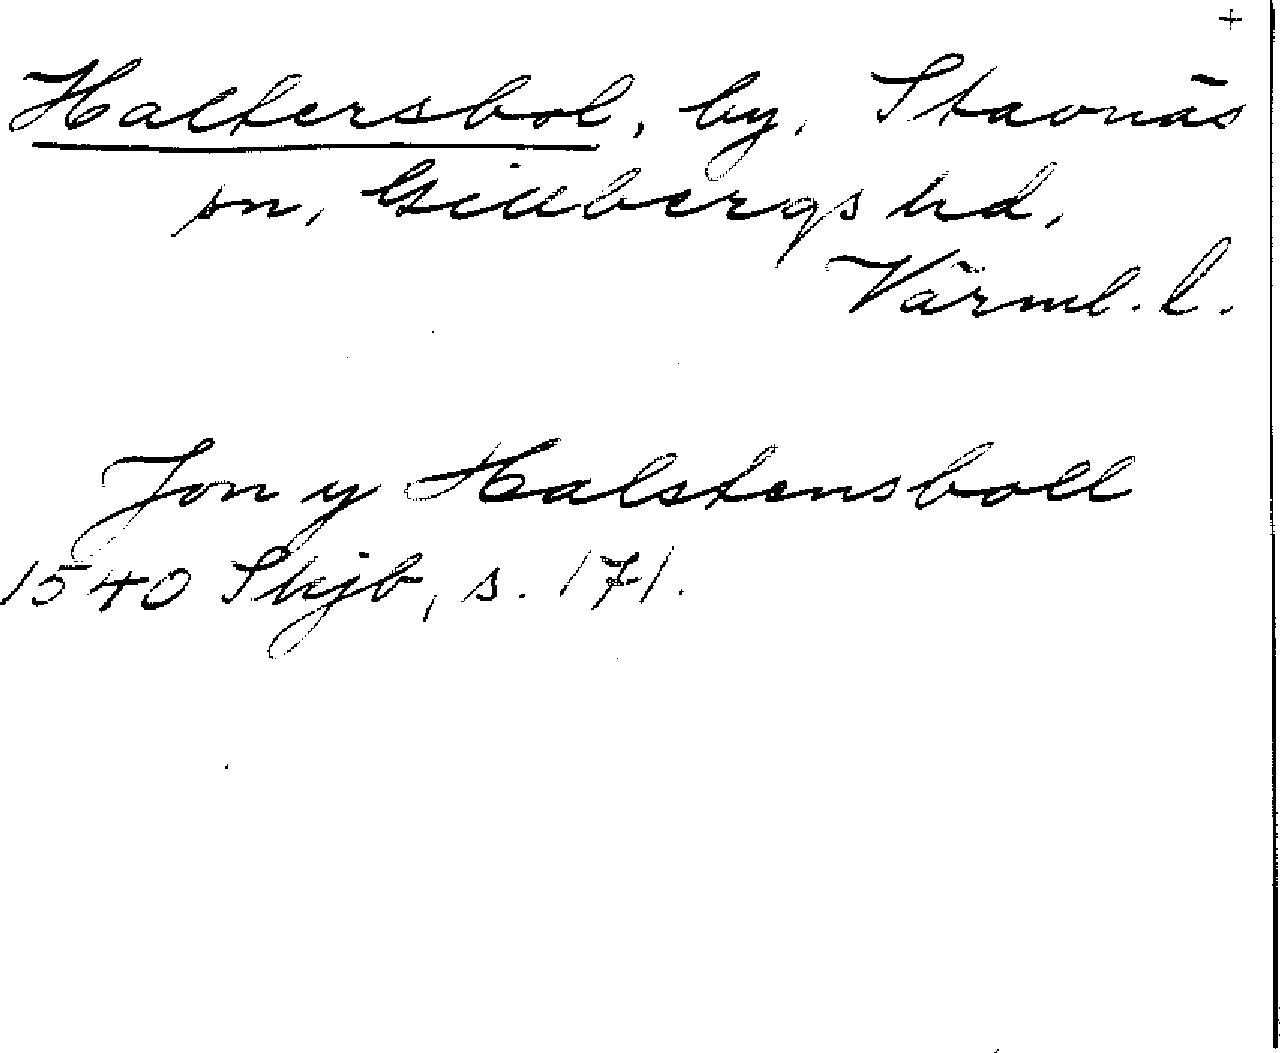 +
Haltersbol, by, Stavnäs
sn, Gillbergs hd,
Värml. l.
Jon y Halstensboll
1540 Skjb, s. 171.